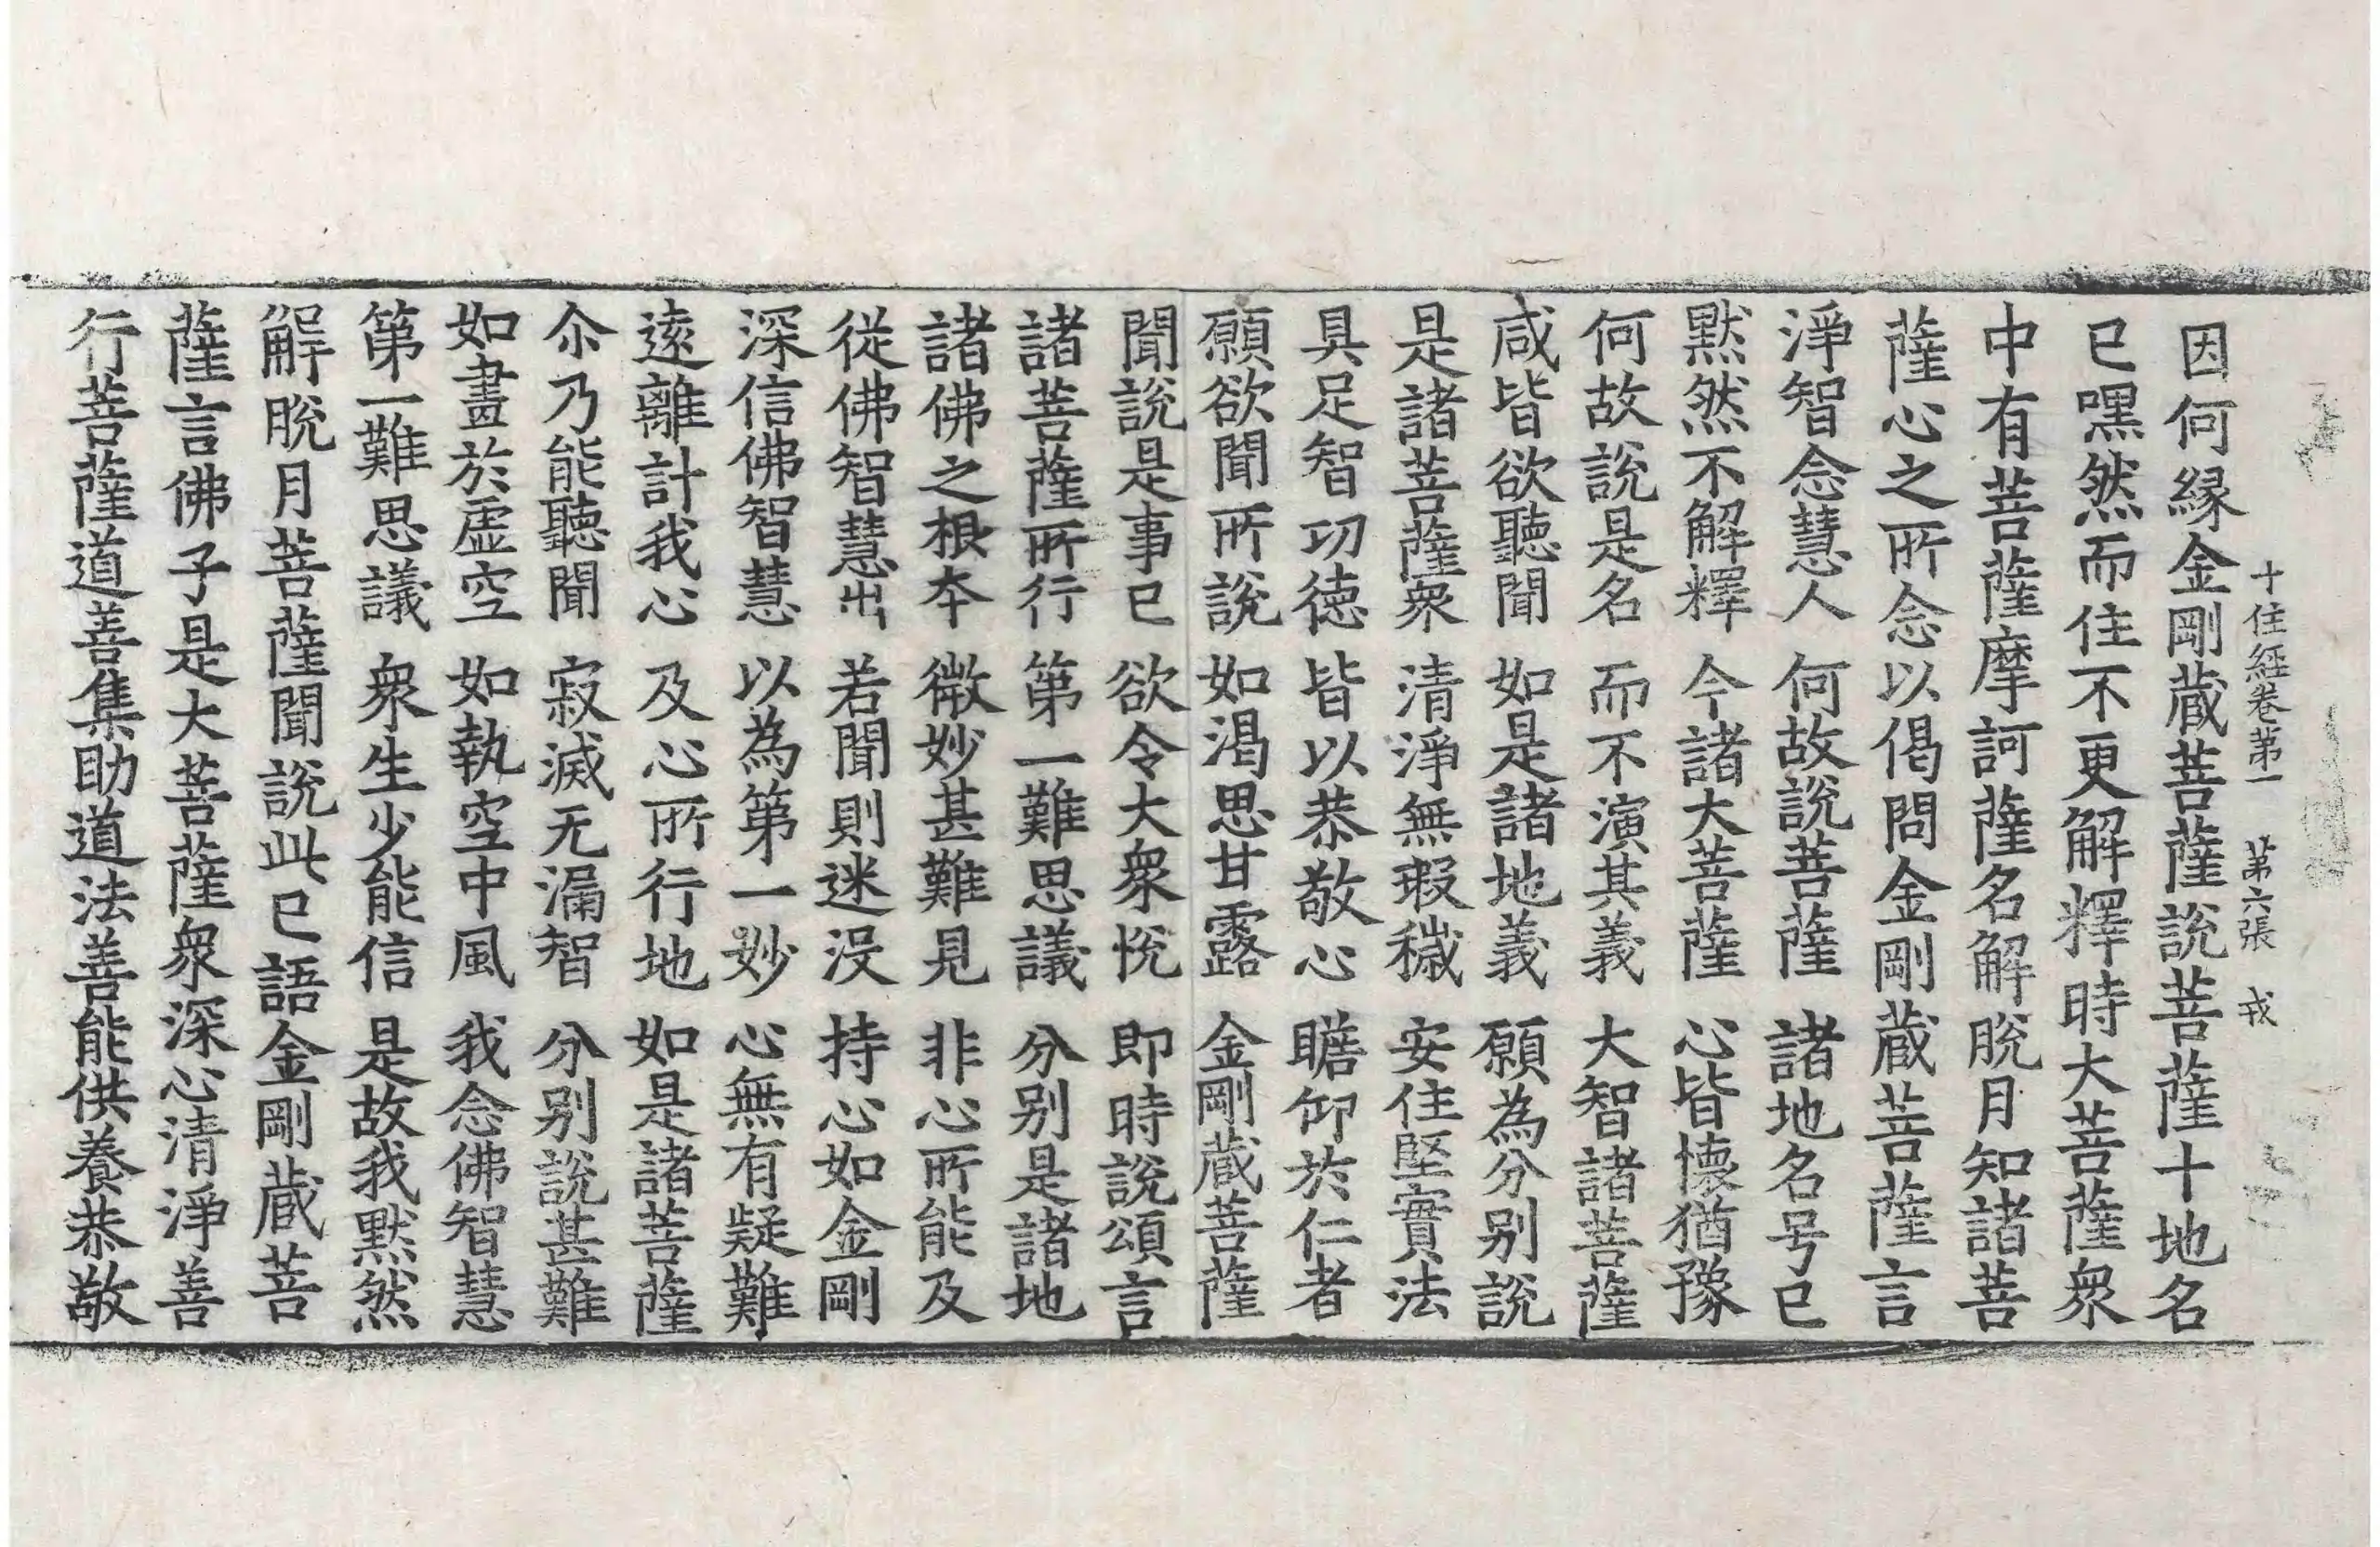 十住經卷第一　第六張　戎
因何縁金剛蔵菩薩說菩薩十地名
已嘿然而住不更解釋時大菩薩衆
中有菩薩摩訶薩名解脫月知諸菩
薩心之所念以偈問金剛蔵菩薩言
淨智念慧人　何故說菩薩　諸地名号已
黙然不解釋　今諸大菩薩　心皆懷猶豫
何故說是名　而不演其義　大智諸菩薩
咸皆欲聽聞　如是諸地義　願為分别說
是諸菩薩衆　清淨無瑕穢　安住堅實法
具足智功徳　皆以恭敬心　瞻仰於仁者
願欲聞所說　如渴思甘露　金剛蔵菩薩
聞說是事已　欲令大衆悅　即時說頌言
諸菩薩所行　第一難思議　分别是諸地
諸佛之根夲　微妙甚難見　非心所能及
從佛智慧出　若聞則迷没　持心如金剛
深信佛智慧　以為第一妙　心無有疑難
逺離計我心　及心所行地　如是諸菩薩
尒乃能聽聞　寂滅无漏智　分别說甚難
如畫於虛空　如執空中風　我念佛智慧
第一難思議　衆生少能信　是故我黙然
解脫月菩薩聞說此已語金剛蔵菩
薩言佛子是大菩薩衆深心清淨善
行菩薩道善集助道法善能供養恭敬